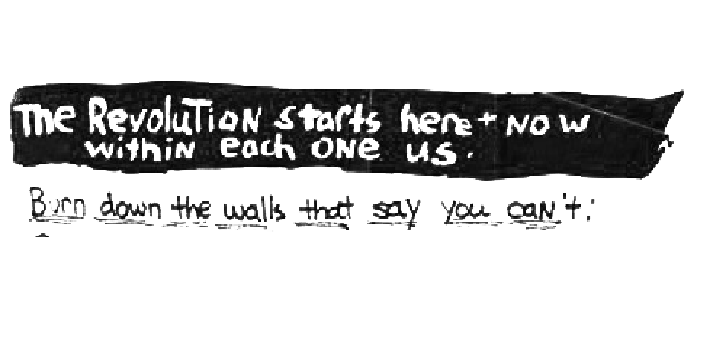 The RevoluTioN starts here + NOW
withiN each ONE us.
Burn down the walls that say you caN't: